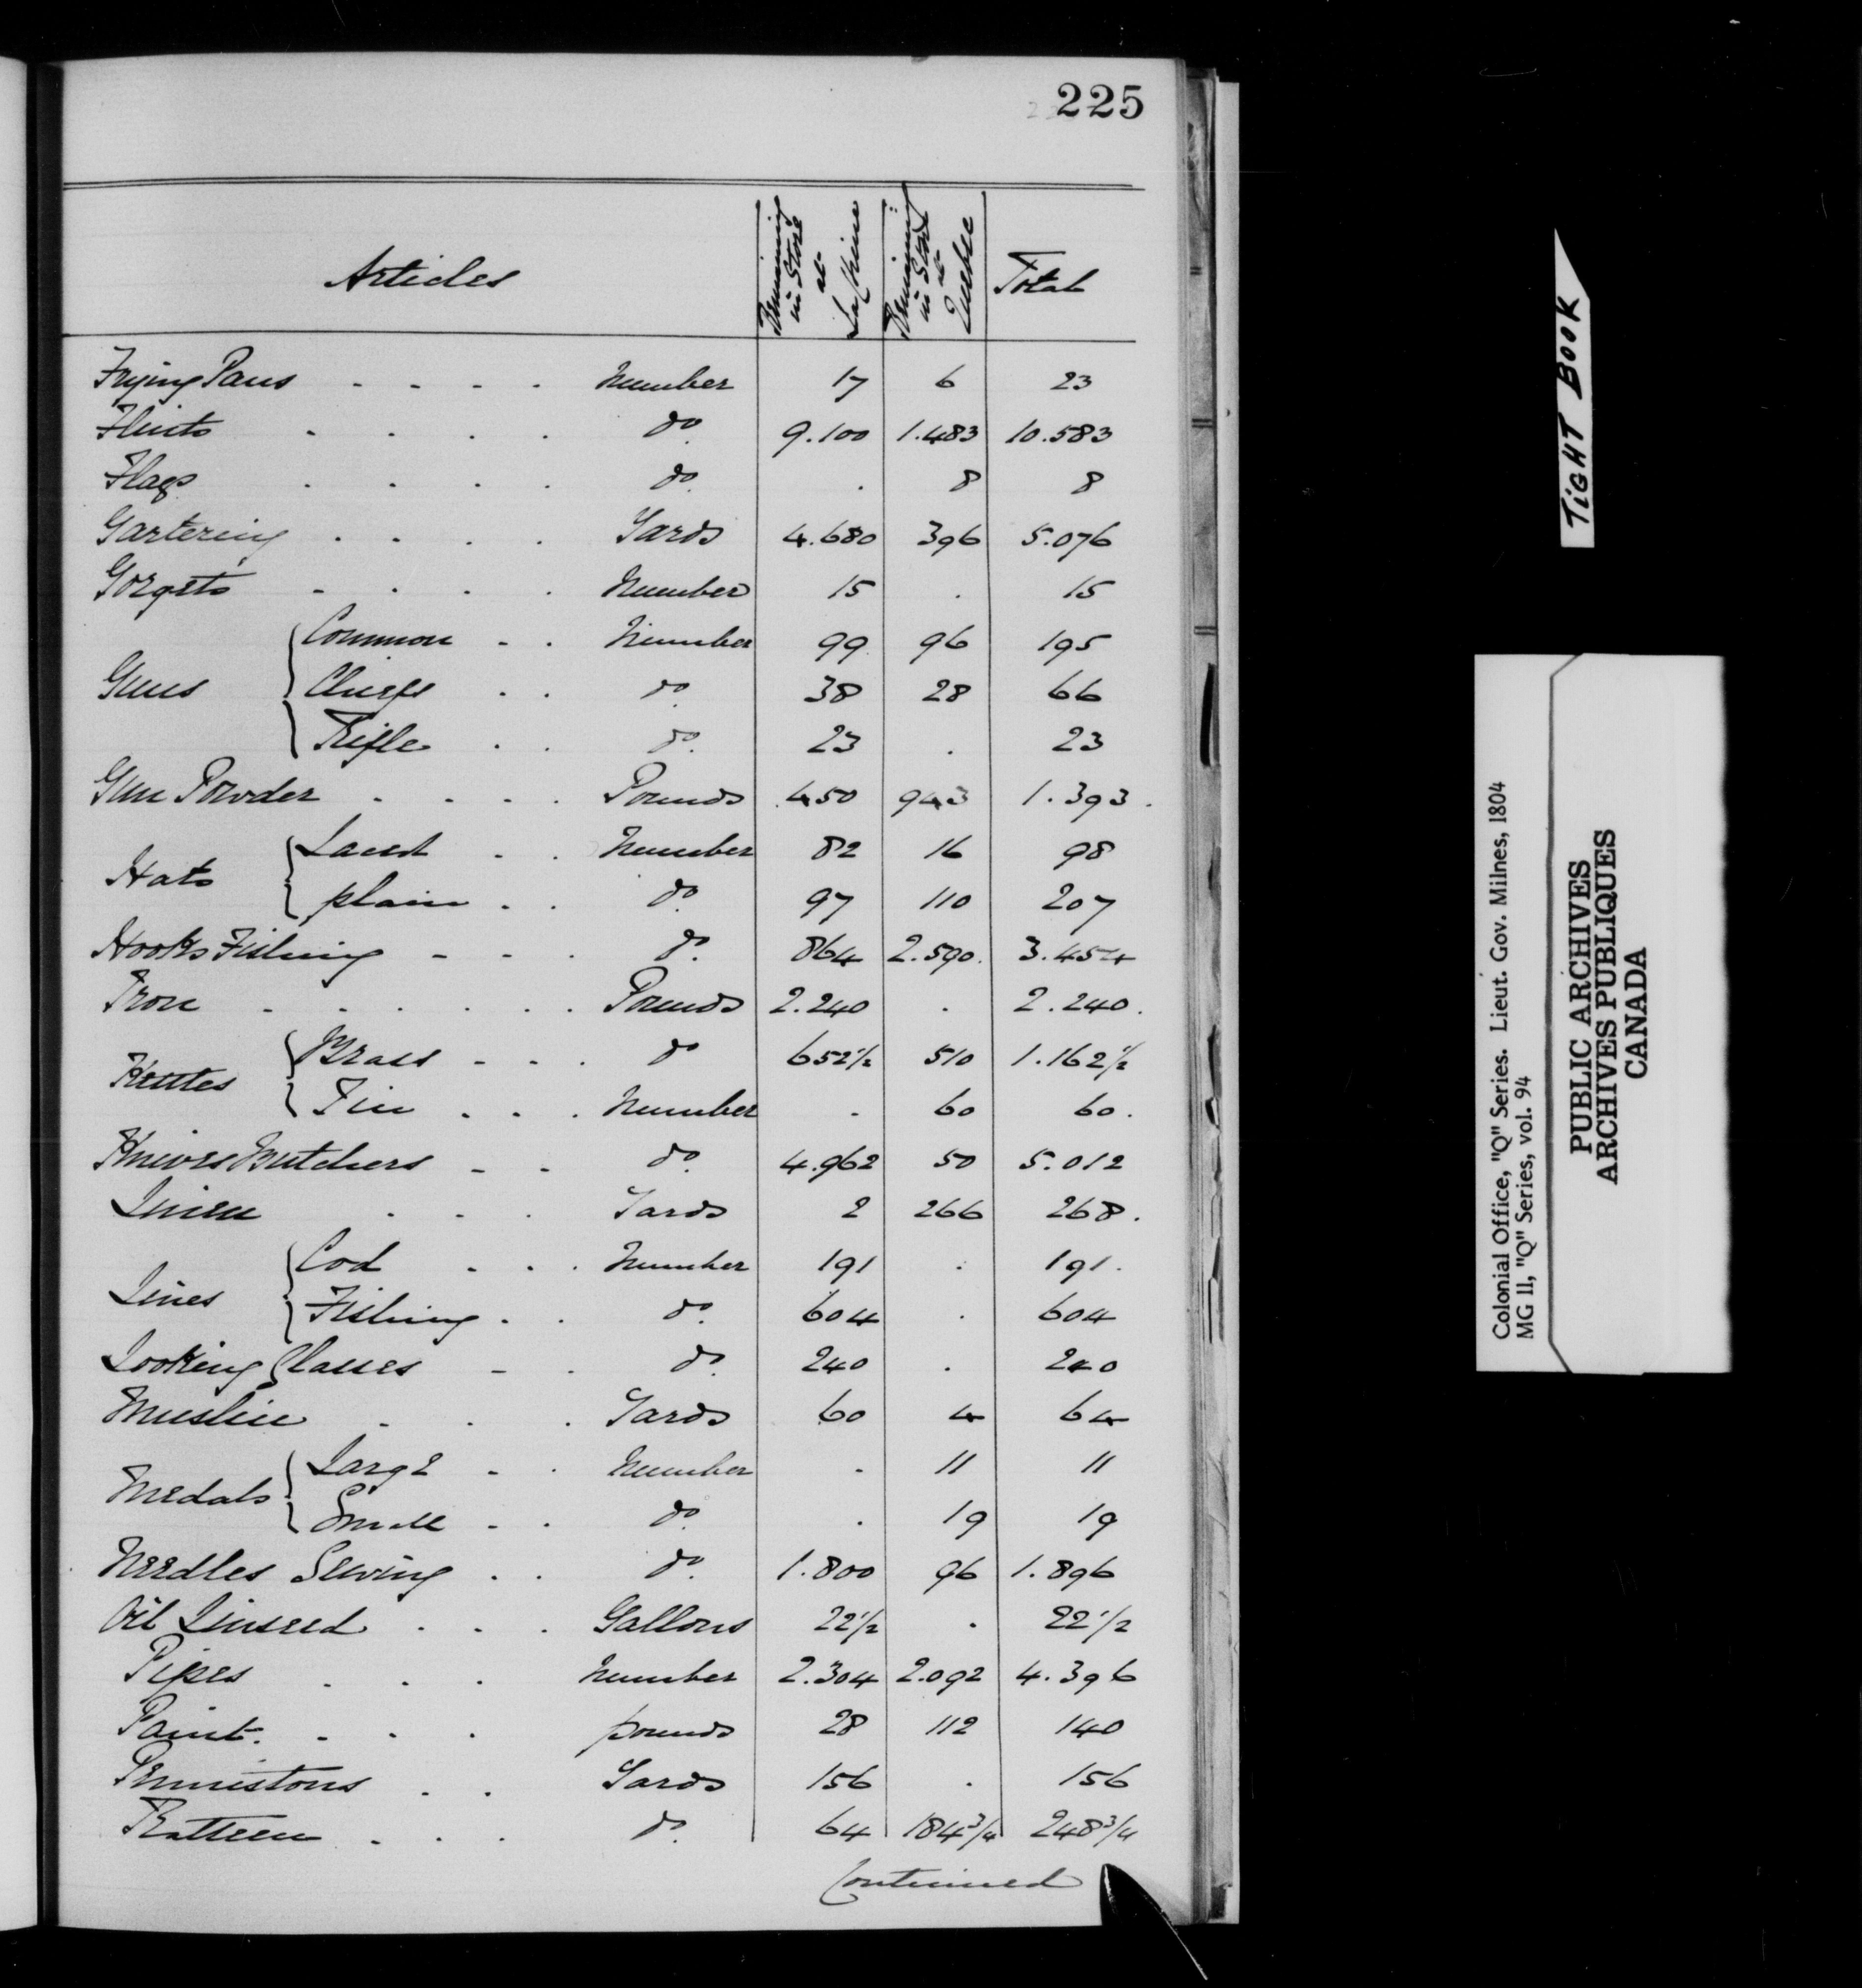 225
Articles | Remaining in Store at La Chine | Remaining in Store at Quebec | Total
Frying Pans - - - - Number 17 6 23
Flints . . . . do. 9.100 1.483 10.583
Flags . . . . do. . 8 8
Gartering . . . . Yards 4.680 396 5.076
Gorgets - . . . Number 15 . 15
Guns { Common - . Number 99 96 195
Chiefs . . do. 38 28 66
Rifle . . do. 23 . 23
Gun Powder - - - . Pounds 450 943 1.393.
Hats { Laced - . Number 82 16 98
plain . . do. 97 110 207
Hooks Fishing - - . do. 864 2.590. 3.454
Iron - - . . . . Pounds 2.240 . 2.240.
Kettles { Brass - - . do 652 1/2 510 1.162 1/2
Tin . . . Number . 60 60.
Knives Butchers - - do. 4.962 50 5.012
Linen . - . Yards 2 266 268.
Lines { Cod - . . Number 191 . 191.
Fishing . . do. 604 . 604
Looking Glasses - . do. 240 . 240
Muslin - . . Yards 60 4 64
Medals { Large - . Number . 11 11
Small - . do. . 19 19
Needles Sewing . . do. 1.800 96 1.896
Oil Linseed . . . Gallons 22 1/2 . 22 1/2
Pipes . . . Number 2.304 2.092 4.396
Paint. - . . pounds 28 112 140
Pennistons . . Yards 156 . 156
Ratteen . . . do. 64 184 3/4 248 3/4
Continued
TIGHT BOOK
Colonial Office, "Q" Series. Lieut. Gov. Milnes, 1804
MG 11, "Q" Series, vol. 94
PUBLIC ARCHIVES
ARCHIVES PUBLIQUES
CANADA